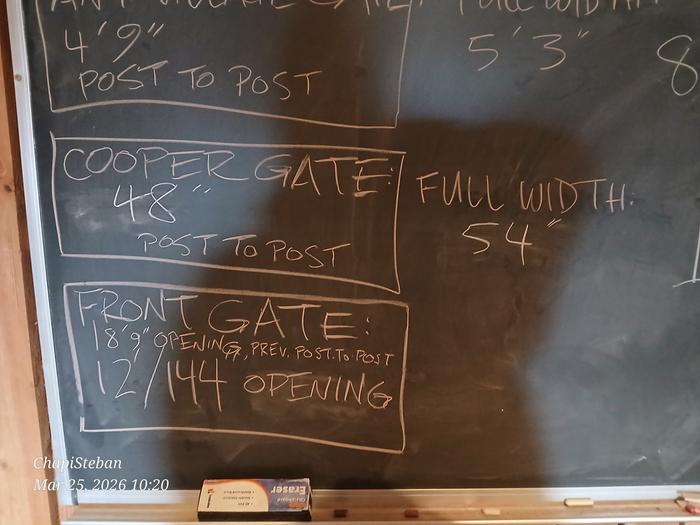 4'9"
POST TO POST
FULL WIDTH:
5'3"
8
COOPER GATE:
48"
POST TO POST
FULL WIDTH:
54"
FRONT GATE:
18'9" OPENING, PREV. POST.TO.POST
12'/144 OPENING
Eraser
ChapiSteban
Mar 25, 2026 10:20